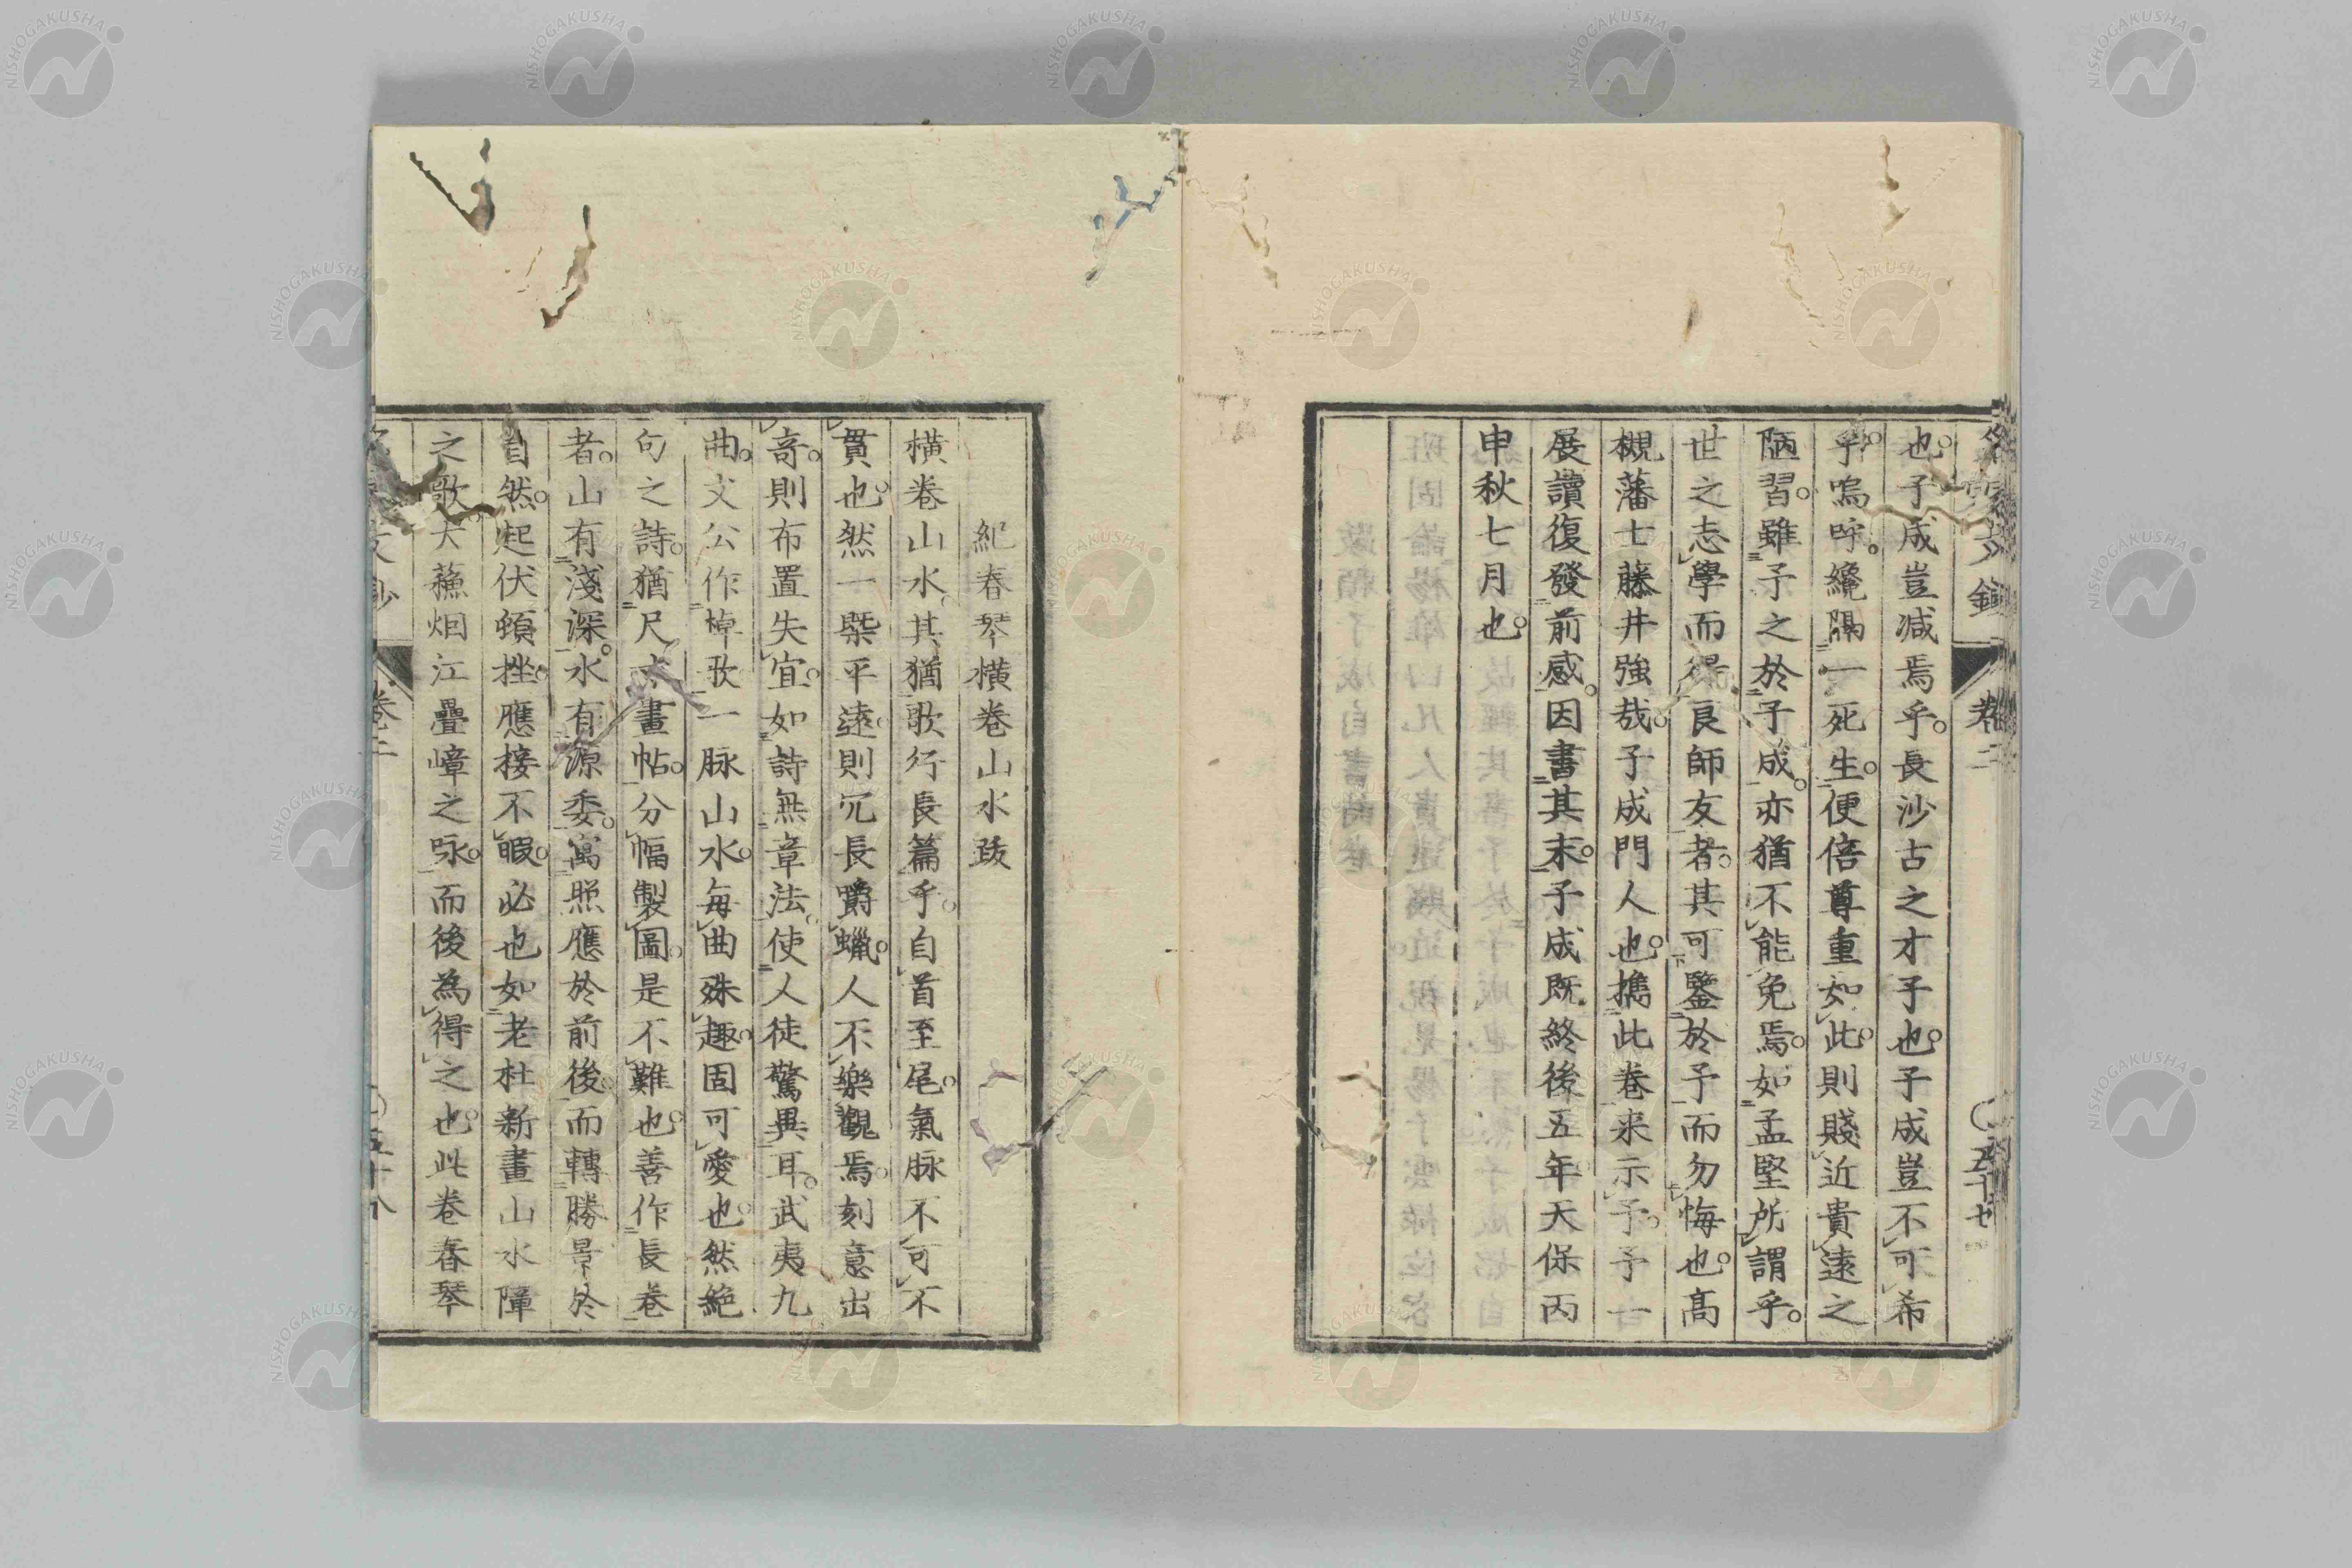 也。予成豈減焉乎。長沙古之才子也。子成豈不可希
乎。嗚呼。纔隔一死生。便倍尊重如此。則賤近貴遠之
陋習。雖予之於子成。亦猶不能免焉。如孟堅所謂乎。
世之志學而得良師友者。其可鑒於予而勿悔也。髙
槻藩士藤井強哉。子成門人也。攜此卷来示予。予一
展讀復發前感。因書其末。子成既終後五年天保丙
申秋七月也。
卷二
五十七
紀春琴横卷山水跋
横卷山水。其猶歌行長篇乎。自首至尾。氣脉不可不
貫也。然一槩平遠。則冗長嚼蠟。人不樂觀焉。刻意出
奇。則布置失宜。如詩無章法。使人徒驚異耳。武夷九
曲。文公作棹歌一脉山水。每曲殊趣。固可愛也。然絶
句之詩。猶尺大畫帖。分幅製圖。是不難也。善作長卷
者。山有淺深。水有源委。寓照應於前後。而轉勝景於
自然。起伏頓挫。應接不暇。必也如老杜新畫山水障
之歌。大蘓烟江疊嶂之咏。而後為得之也。此卷春琴
卷二
五十八
NISHOGAKUSHA